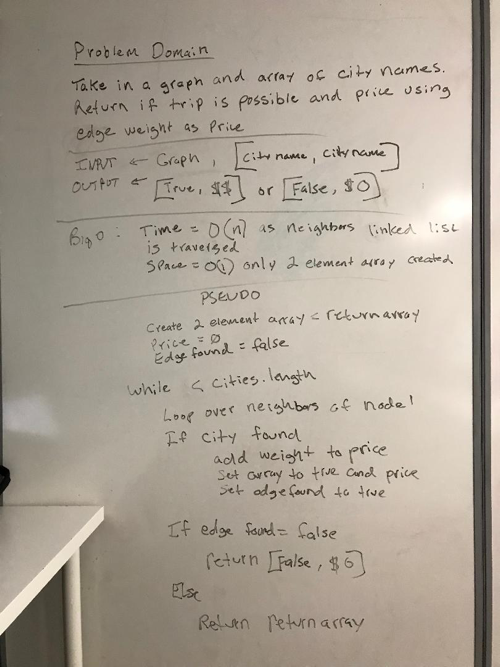 Problem Domain
Take in a graph and array of city names.
Return if trip is possible and price using
edge weight as Price
INPUT ← Graph, [City name, City name]
OUTPUT ← [True, $$] or [False, $0]
Big O: Time = O(n) as neighbors linked list
is traversed
Space = O(1) only 2 element array created
PSEUDO
Create 2 element array ← returnarray
Price = 0
Edgefound = false
While < Cities.length
Loop over neighbors of node1
If city found
add weight to price
set array to true and price
set edgefound to true
If edge found = false
return [False, $0]
Else
Return returnarray